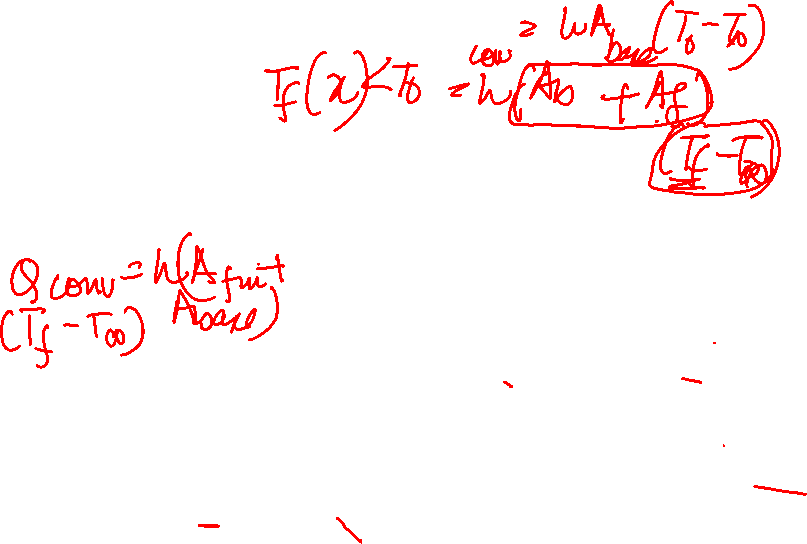 = hA_base(T_o - T_∞)
T_f(x) < T_o
conv = h(A_b + A_f)
(T_f - T_∞)
Q_conv = h(A_fin +
A_base)
(T_f - T_∞)